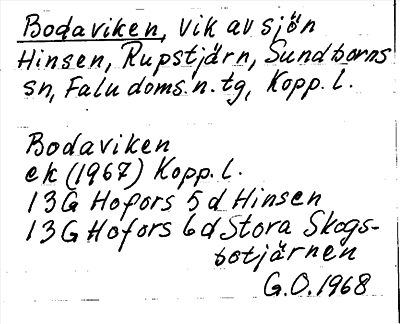 Bodaviken, vik av sjön
Hinsen, Rupstjärn, Sundborns
sn, Falu doms.n.tg, Kopp. l.
Bodaviken
ek (1967) Kopp. l.
13G Hofors 5d Hinsen
13G Hofors 6d Stora Skogs-
botjärnen
G.O. 1968